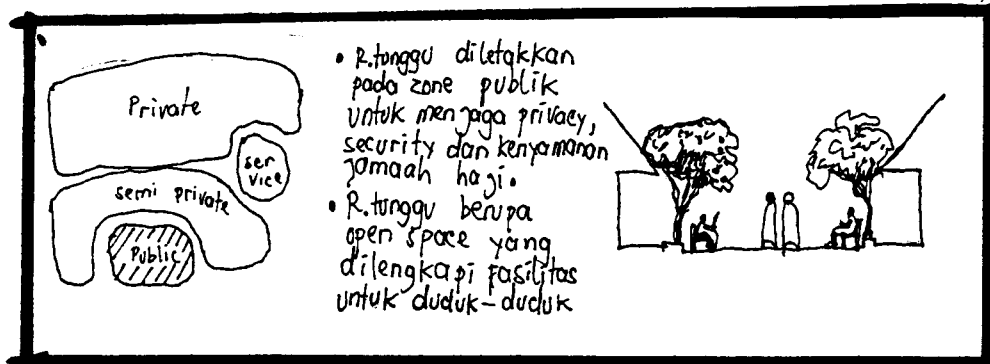 Private
ser
vice
semi private
Public
• R.tunggu diletakkan
pada zone publik
untuk menjaga privacy,
security dan kenyamanan
jamaah haji.
• R.tunggu berupa
open space yang
dilengkapi fasilitas
untuk duduk-duduk